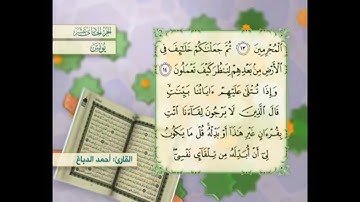 الجزء الحادي عشر
يونس
ٱلْمُجْرِمِينَ ١٣ ثُمَّ جَعَلْنَٰكُمْ خَلَٰٓئِفَ فِى
ٱلْأَرْضِ مِنۢ بَعْدِهِمْ لِنَنظُرَ كَيْفَ تَعْمَلُونَ ١٤
وَإِذَا تُتْلَىٰ عَلَيْهِمْ ءَايَاتُنَا بَيِّنَٰتٍ
قَالَ ٱلَّذِينَ لَا يَرْجُونَ لِقَآءَنَا ٱئْتِ
بِقُرْءَانٍ غَيْرِ هَٰذَآ أَوْ بَدِّلْهُ قُلْ مَا يَكُونُ
لِىٓ أَنْ أُبَدِّلَهُۥ مِن تِلْقَآئِ نَفْسِىٓ
القارئ: أحمد الدباغ